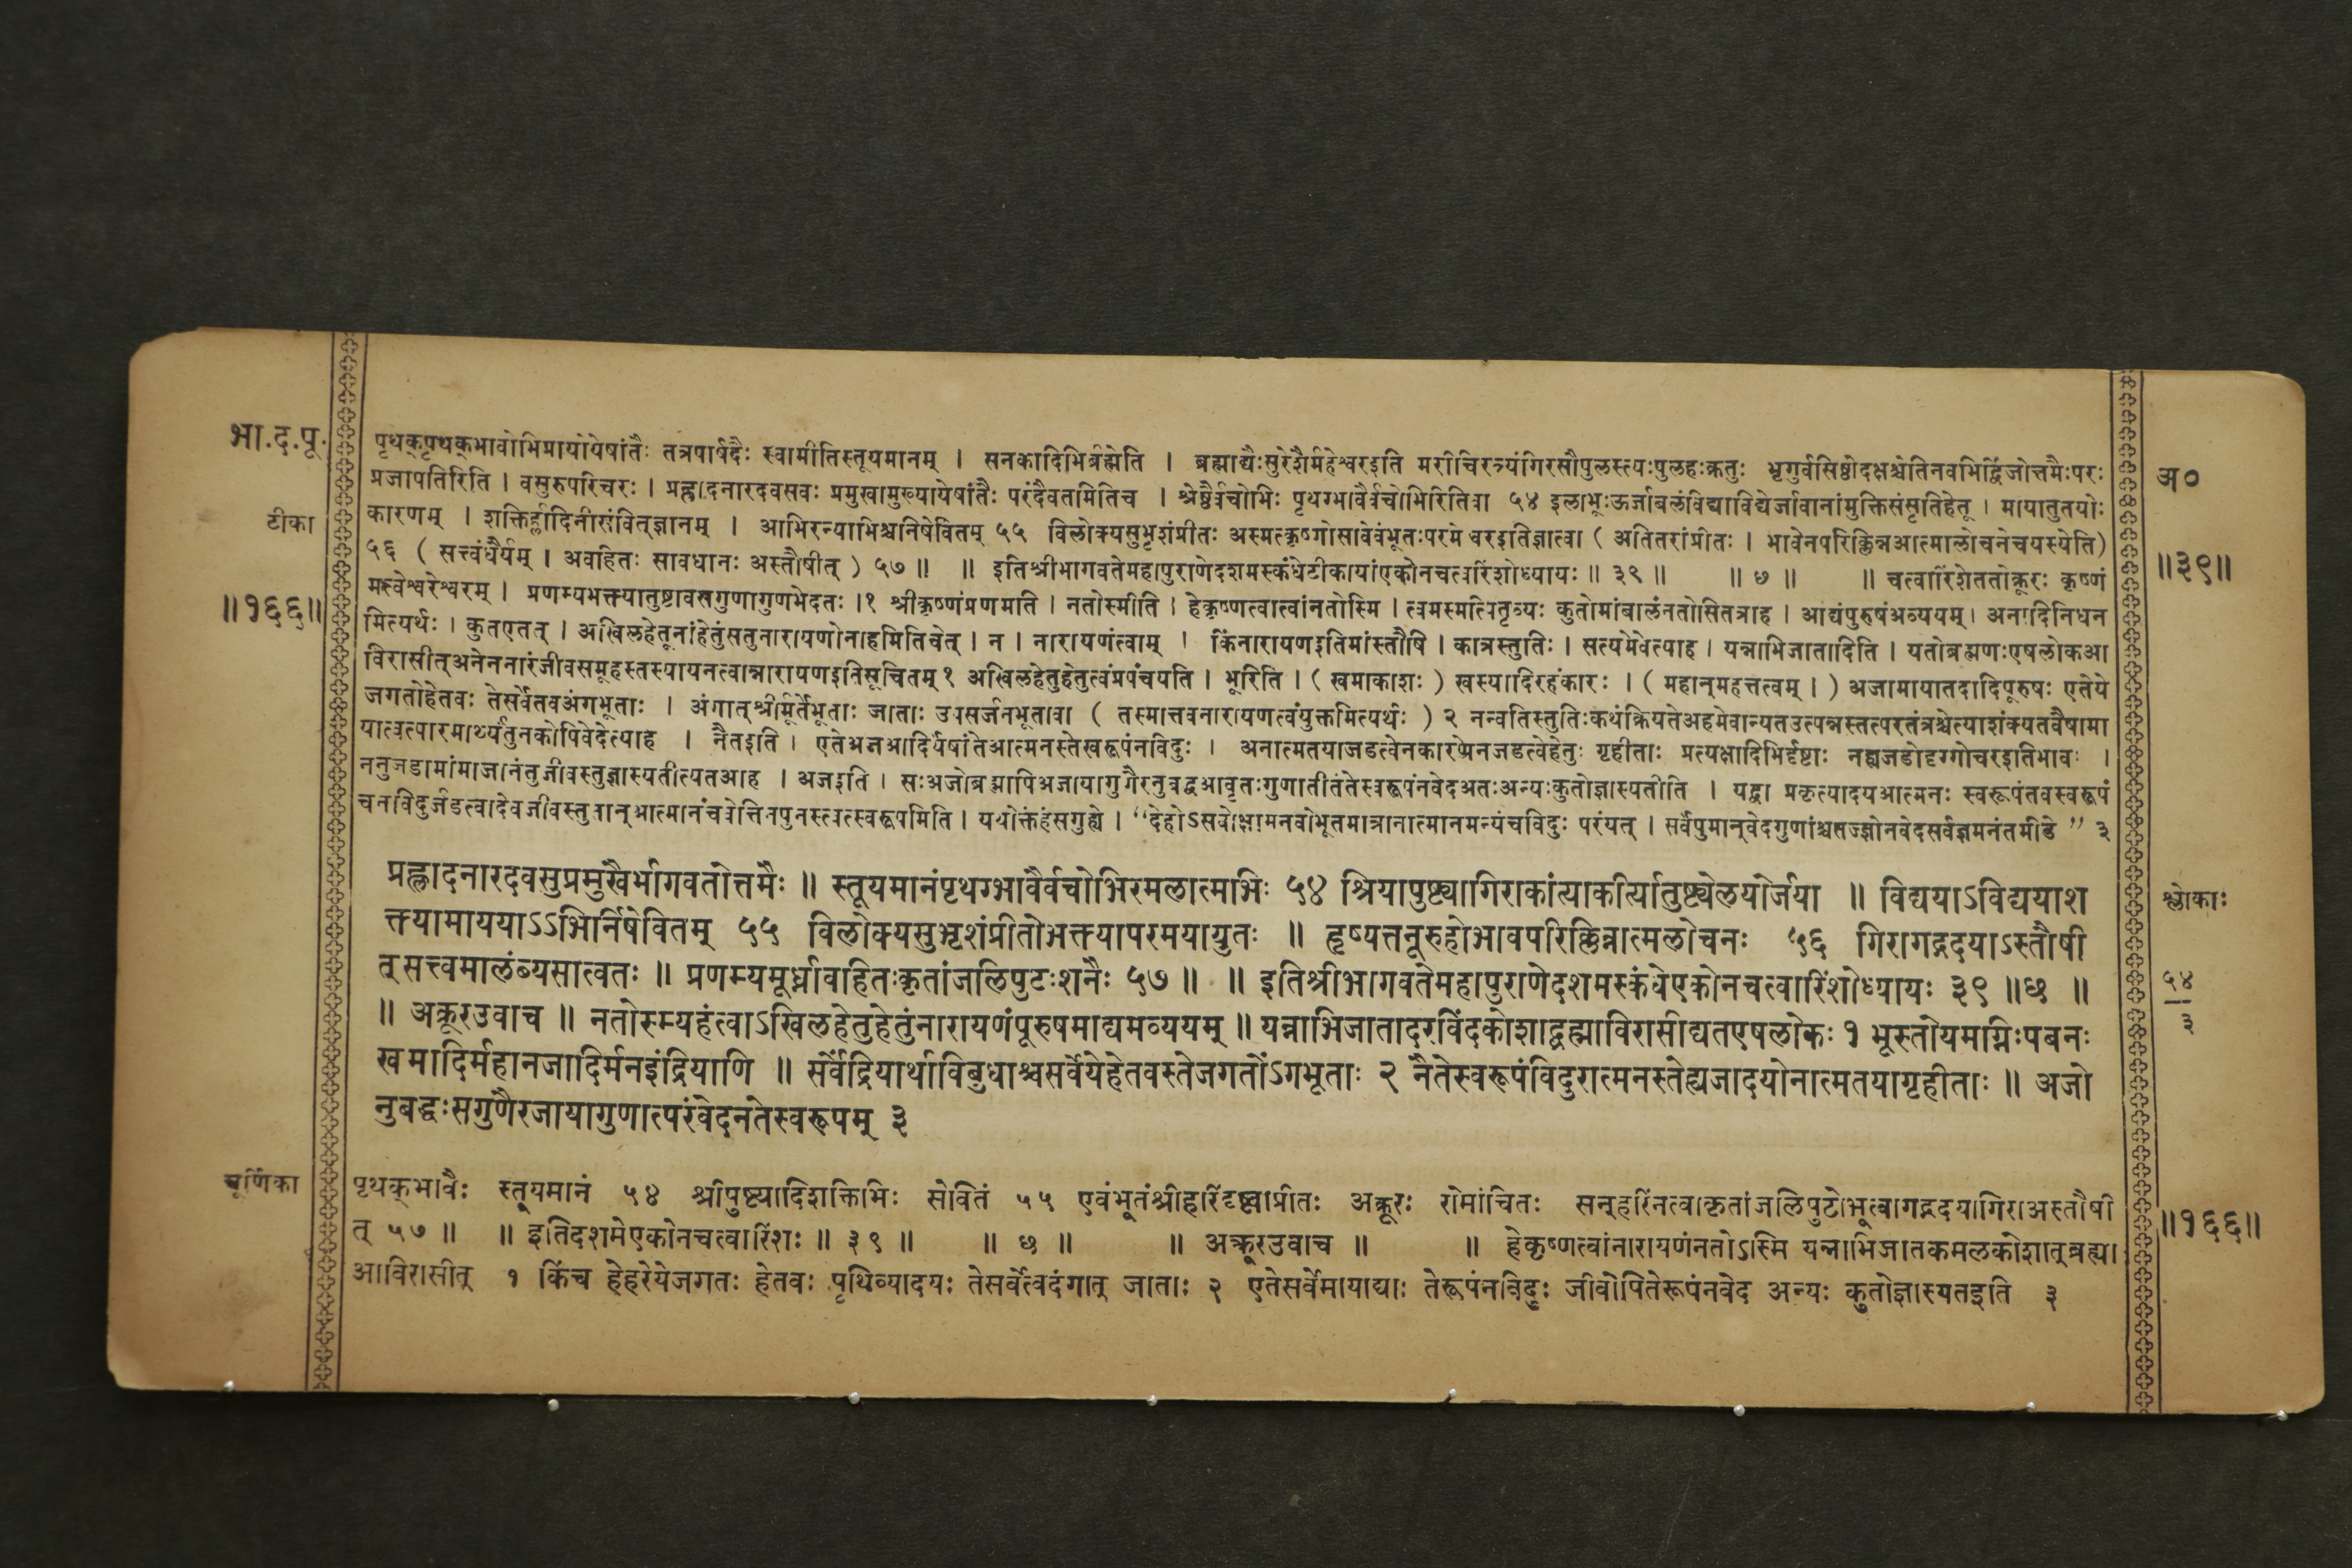 भा.द.पू.
टीका
॥१६६॥
पृथक्पृथक्भावोभिप्रायोयेषांतैः तत्रपार्षदैः स्वामीतिस्तूयमानम् । सनकादिभिर्ब्रह्मेति । ब्रह्माद्यैःसुरेशैर्महेश्वरइति मरीचिरत्र्यंगिरसौपुलस्त्यःपुलहःक्रतुः भृगुर्वसिष्ठोदक्षश्चेतिनवभिर्द्विजोत्तमैःपरः
प्रजापतिरिति । वसुरुपरिचरः । प्रह्लादनारदवसवः प्रमुखामुख्यायेषांतैः परंदैवतमितिच । श्रेष्ठैर्वचोभिः पृथग्भावैर्वचोभिरितिवा ५४ इलाभूःऊर्जाबलंविद्याविद्येर्जावानांमुक्तिसंसृतिहेतू । मायातुतयोः
कारणम् । शक्तिर्ह्लादिनीसंवित्ज्ञानम् । आभिरन्याभिश्चनिषेवितम् ५५ विलोक्यसुभृशंप्रीतः अस्मत्कृष्णोसावेवंभूतःपरमेश्वरइतिज्ञात्वा ( अतितरांप्रीतः । भावेनपरिक्लिन्नआत्मालोचनेचयस्येति)
५६ ( सत्त्वंधैर्यम् । अवहितः सावधानः अस्तौषीत् ) ५७ ॥ ॥ इतिश्रीभागवतेमहापुराणेदशमस्कंधेटीकायांएकोनचत्वारिंशोध्यायः ॥ ३९ ॥ ॥ ७ ॥ ॥ चत्वारिंशेततोक्रूरः कृष्णं
मत्त्वेश्वरेश्वरम् । प्रणम्यभक्त्यातुष्टावसगुणागुणभेदतः ।१ श्रीकृष्णंप्रणमति । नतोस्मीति । हेकृष्णत्वात्वांनतोस्मि । त्वमस्मत्पितृव्यः कुतोमांबालंनतोसितत्राह । आद्यंपुरुषंअव्ययम् । अनादिनिधन
मित्यर्थः । कुतएतत् । अखिलहेतूनांहेतुंसतुनारायणोनाहमितिचेत् । न । नारायणंत्वाम् । किंनारायणइतिमांस्तौषि । कात्रस्तुतिः । सत्यमेवेत्याह । यन्नाभिजातादिति । यतोब्रह्मणःएषलोकआ
विरासीत्अनेननारंजीवसमूहस्तस्यायनत्वान्नारायणइतिसूचितम् १ अखिलहेतुहेतुत्वंप्रपंचयति । भूरिति । ( खमाकाशः ) खस्यादिरहंकारः । ( महान्महत्तत्वम् । ) अजामायातदादिपूरुषः एतेये
जगतोहेतवः तेसर्वेतवअंगभूताः । अंगात्श्रीमूर्तेभूताः जाताः उपसर्जनभूतावा ( तस्मात्तवनारायणत्वंयुक्तमित्यर्थः ) २ नन्वतिस्तुतिःकथंक्रियतेअहमेवान्यतउत्पन्नस्तत्परतंत्रश्चेत्याशंक्यतवैषामा
यात्वत्पारमार्थ्यंतुनकोपिवेदेत्याह । नैतइति । एतेअजाआदिर्येषांतेआत्मनस्तेस्वरूपंनविदुः । अनात्मतयाजडत्वेनकारणेनजडत्वेहेतुः गृहीताः प्रत्यक्षादिभिर्दृष्टाः नह्यजडोदृग्गोचरइतिभावः ।
ननुजडामांमाजानंतुजीवस्तुज्ञास्यतीत्यतआह । अजइति । सःअजोब्रह्मापिअजायागुणैरनुबद्धआवृतःगुणातीतंतेस्वरूपंनवेदअतःअन्यःकुतोज्ञास्यतीति । यद्वा प्रकृत्यादयआत्मनः स्वरूपंतवस्वरूपं
चनविदुर्जडत्वादेवजीवस्तुतान्आत्मानंचवेत्तिनपुनस्त्वत्स्वरूपमिति । यथोक्तंहंसगुह्ये । “देहोऽसवोक्षामनवोभूतमात्रानात्मानमन्यंचविदुः परंयत् । सर्वंपुमान्वेदगुणांश्चतज्ज्ञोनवेदसर्वज्ञमनंतमीडे ” ३
प्रह्लादनारदवसुप्रमुखैर्भागवतोत्तमैः ॥ स्तूयमानंपृथग्भावैर्वचोभिरमलात्मभिः ५४ श्रियापुष्ट्यागिराकांत्याकीर्त्यातुष्ट्येलयोर्जया ॥ विद्ययाऽविद्ययाश
क्त्यामाययाऽऽभिर्निषेवितम् ५५ विलोक्यसुभृशंप्रीतोभक्त्यापरमयायुतः ॥ हृष्यत्तनूरुहोभावपरिक्लिन्नात्मलोचनः ५६ गिरागद्गदयाऽस्तौषी
त्सत्त्वमालंब्यसात्वतः ॥ प्रणम्यमूर्ध्नावहितःकृतांजलिपुटःशनैः ५७ ॥ ॥ इतिश्रीभागवतेमहापुराणेदशमस्कंधेएकोनचत्वारिंशोध्यायः ३९ ॥छ ॥
॥ अक्रूरउवाच ॥ नतोस्म्यहंत्वाऽखिलहेतुहेतुंनारायणंपूरुषमाद्यमव्ययम् ॥ यन्नाभिजातादरविंदकोशाद्ब्रह्माविरासीद्यतएषलोकः १ भूस्तोयमग्निःपवनः
खमादिर्महानजादिर्मनइंद्रियाणि ॥ सर्वेंद्रियार्थाविबुधाश्चसर्वेयेहेतवस्तेजगतोंऽगभूताः २ नैतेस्वरूपंविदुरात्मनस्तेह्यजादयोनात्मतयागृहीताः ॥ अजो
नुबद्धःसगुणैरजायागुणात्परंवेदनतेस्वरूपम् ३
चूर्णिका
पृथक्भावैः स्तूयमानं ५४ श्रीपुष्ट्यादिशक्तिभिः सेवितं ५५ एवंभूतंश्रीहरिंदृष्ट्वाप्रीतः अक्रूरः रोमांचितः सन्हरिंनत्वाकृतांजलिपुटोभूत्वागद्गदयागिराअस्तौषी
त् ५७ ॥ ॥ इतिदशमेएकोनचत्वारिंशः ॥ ३९ ॥ ॥ छ ॥ ॥ अक्रूरउवाच ॥ ॥ हेकृष्णत्वांनारायणंनतोऽस्मि यन्नाभिजातकमलकोशात्ब्रह्मा
आविरासीत् १ किंच हेहरेयेजगतः हेतवः पृथिव्यादयः तेसर्वेत्वदंगात् जाताः २ एतेसर्वेमायाद्याः तेरूपंनविदुः जीवोपितेरूपंनवेद अन्यः कुतोज्ञास्यतइति ३
अ०
॥३९॥
श्लोकाः
५४
३
॥१६६॥